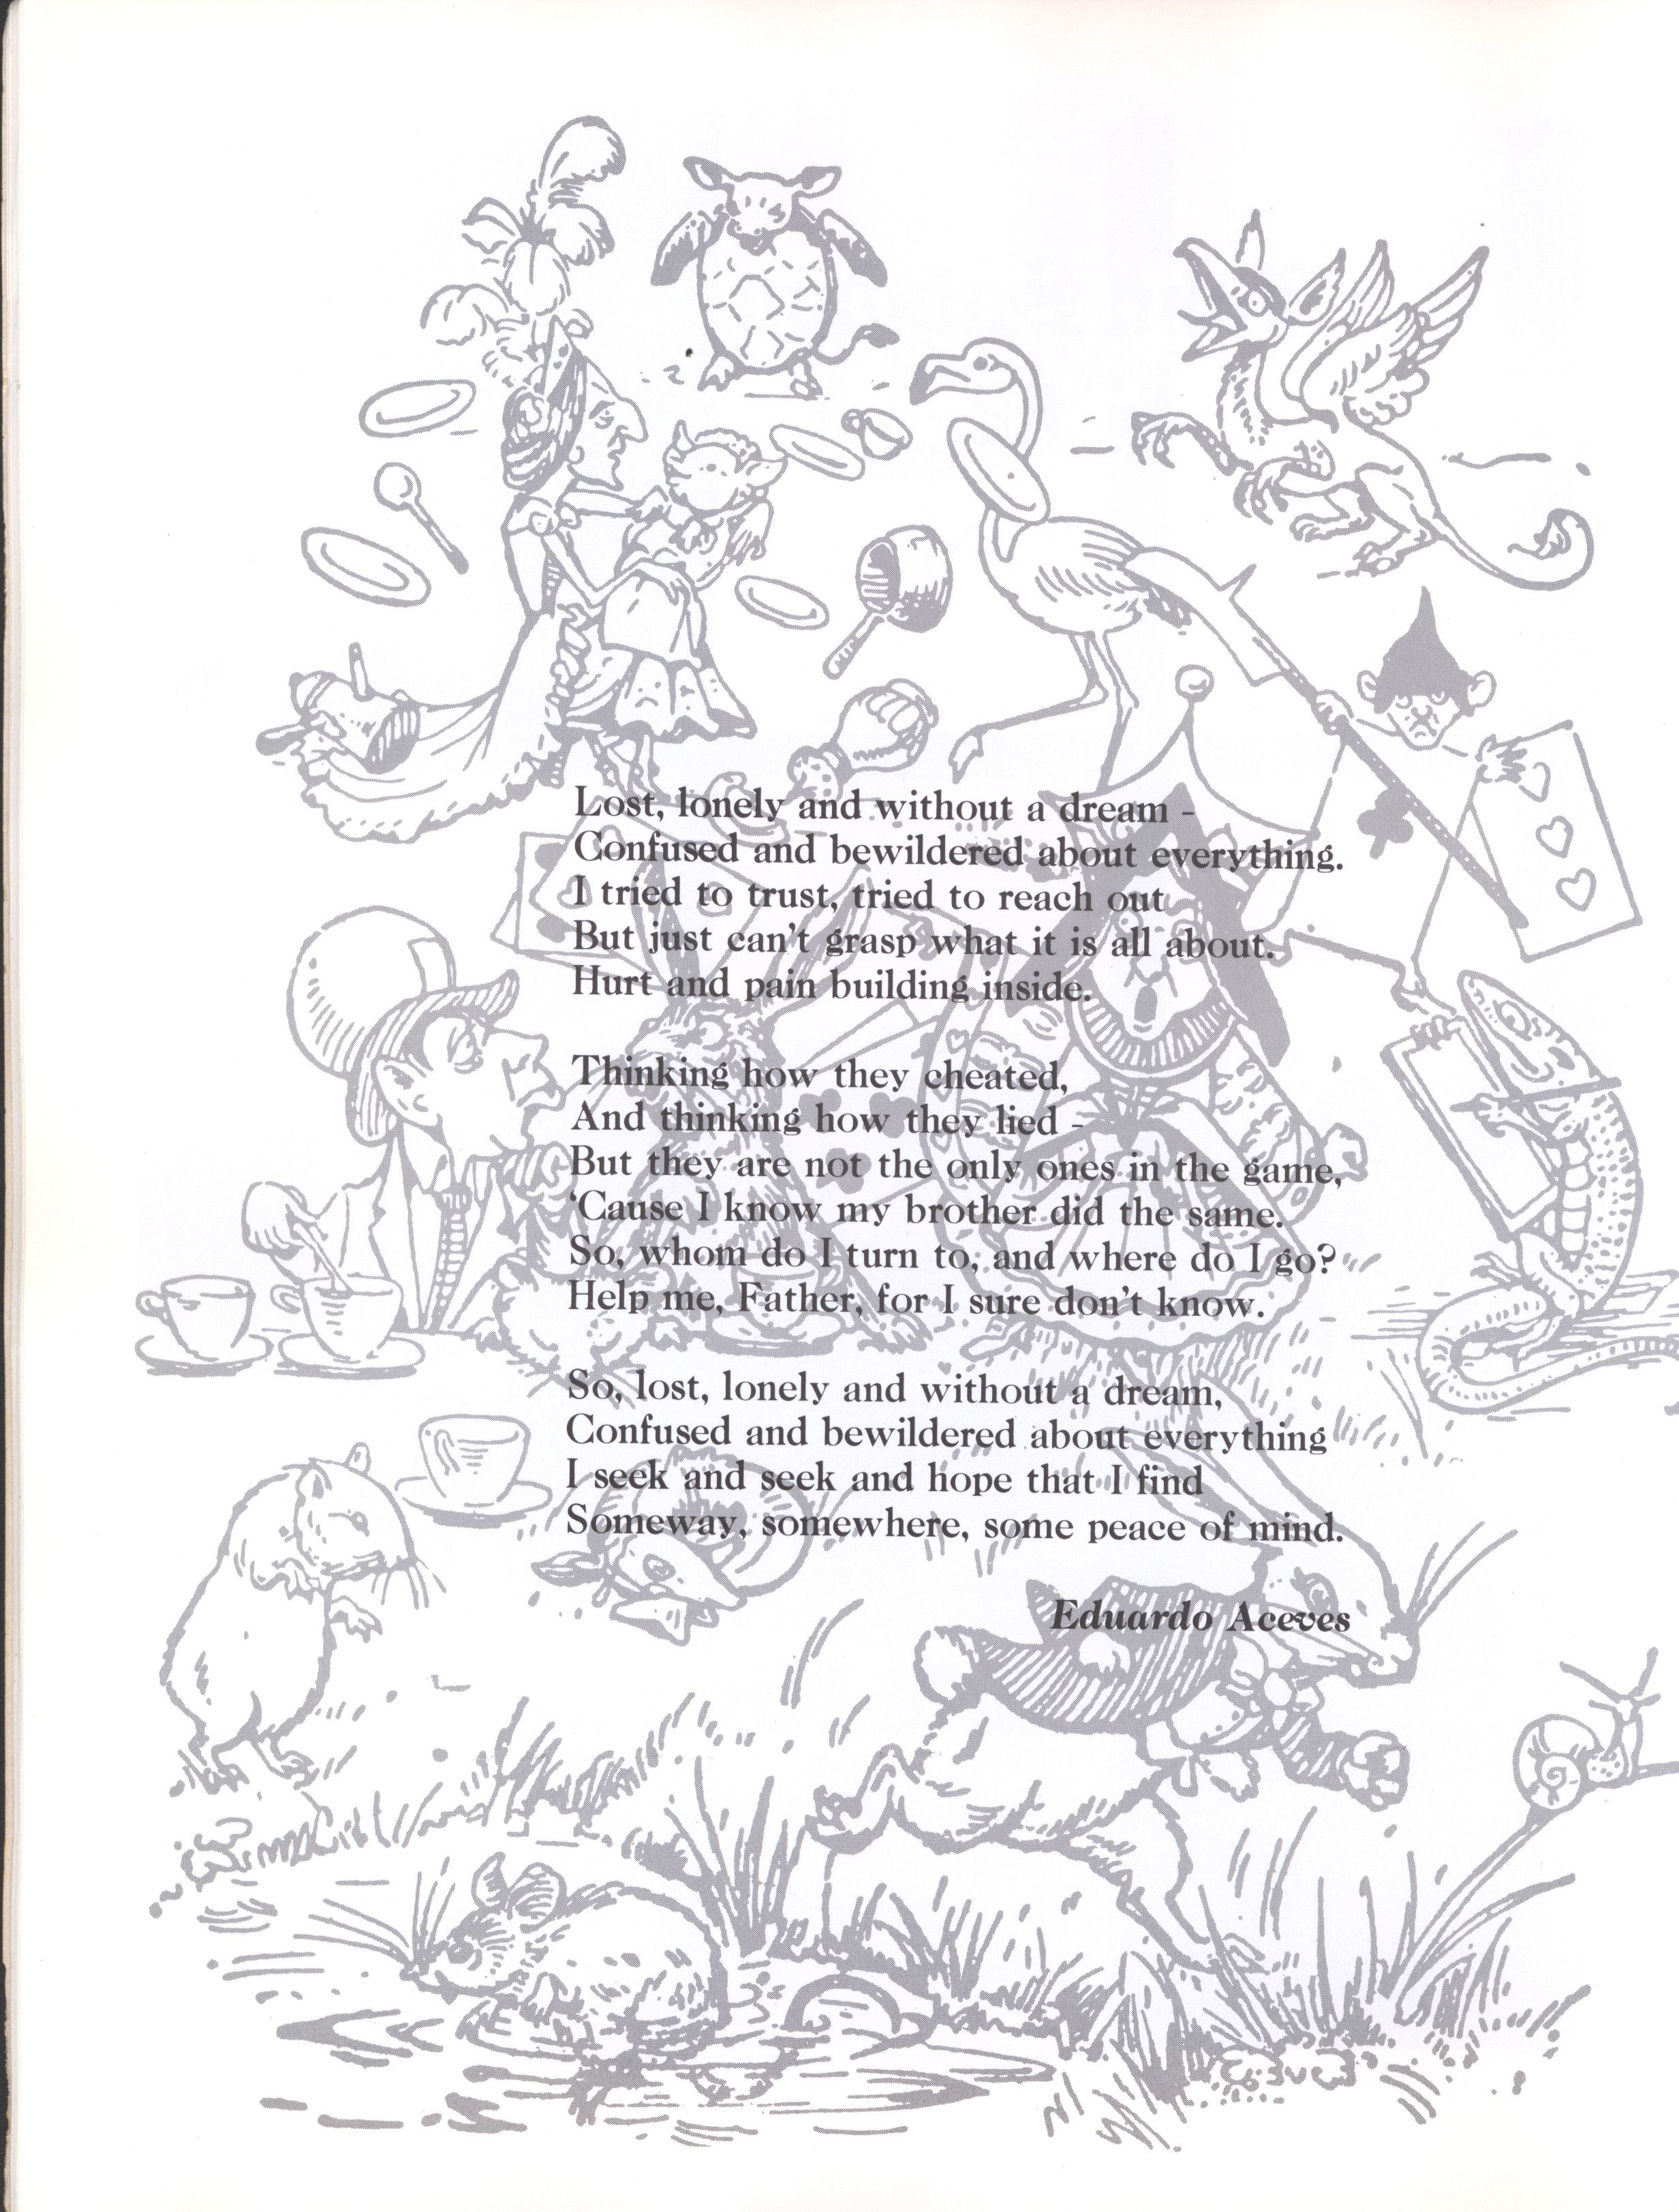 Lost, lonely and without a dream -
Confused and bewildered about everything.
I tried to trust, tried to reach out
But just can't grasp what it is all about.
Hurt and pain building inside.
Thinking how they cheated,
And thinking how they lied -
But they are not the only ones in the game,
‘Cause I know my brother did the same.
So, whom do I turn to, and where do I go?
Help me, Father, for I sure don't know.
So, lost, lonely and without a dream,
Confused and bewildered about everything
I seek and seek and hope that I find
Someway, somewhere, some peace of mind.
Eduardo Aceves